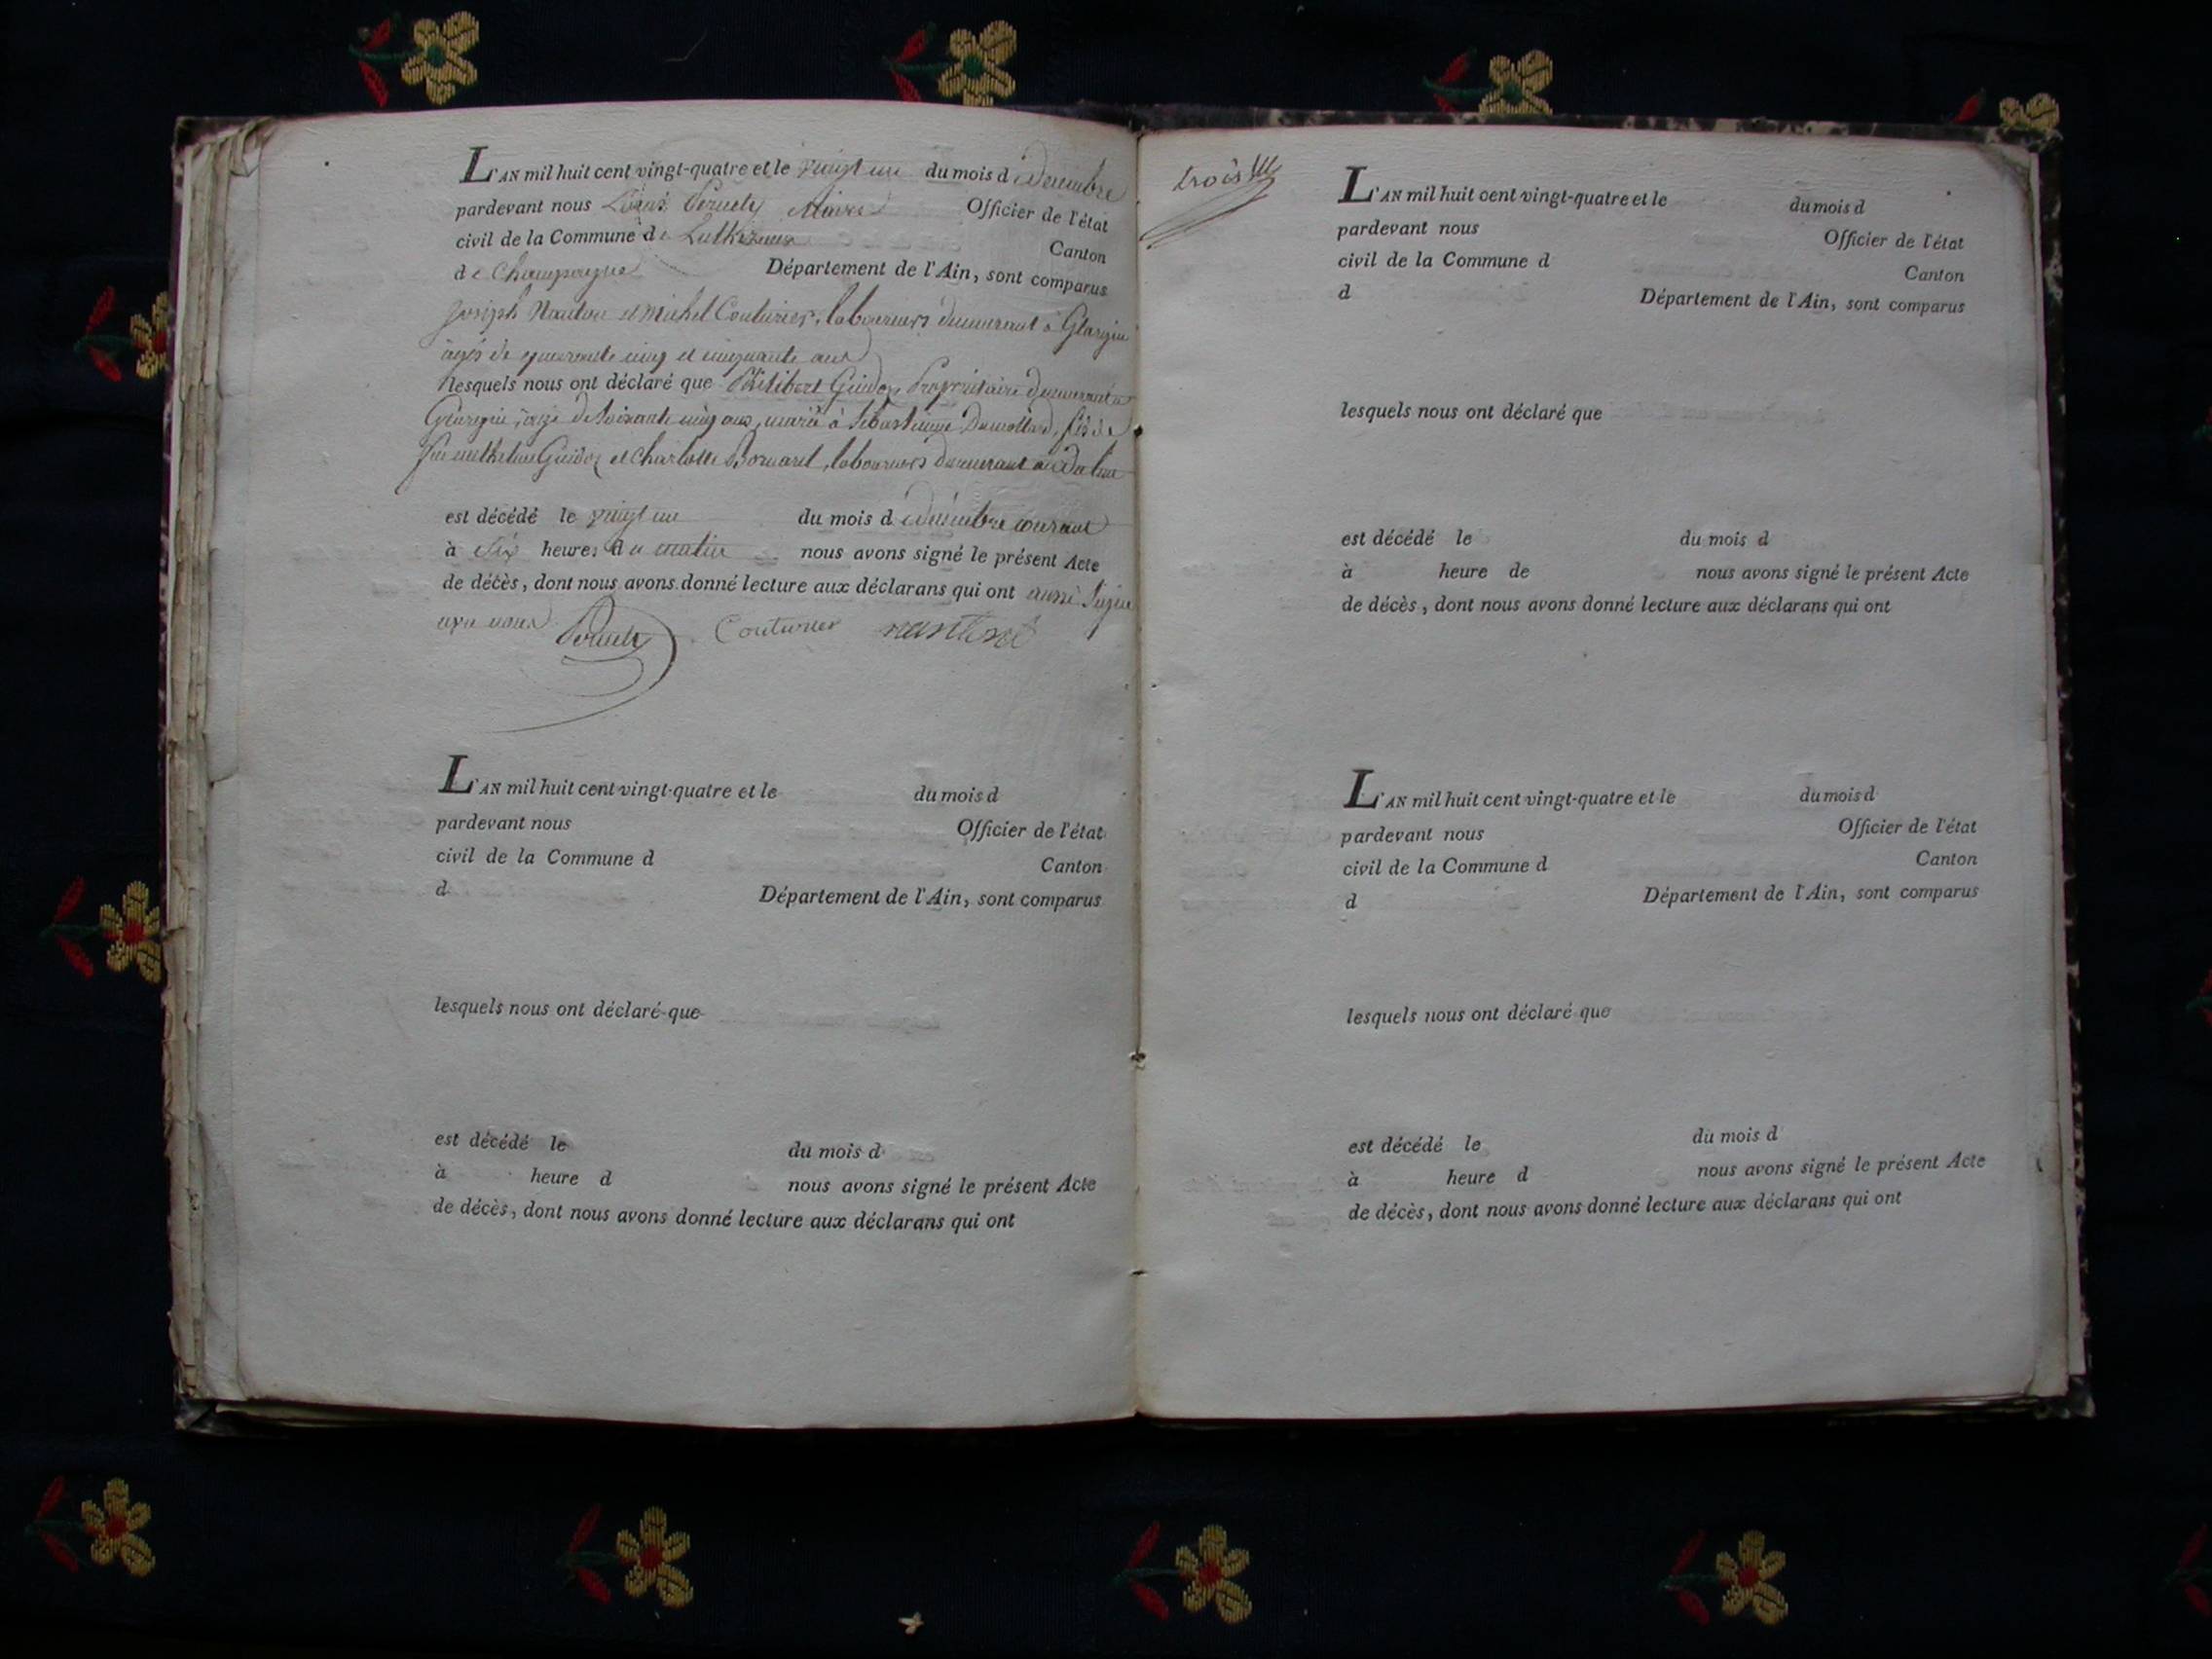 L'AN mil huit cent vingt-quatre et le vingt un du mois d décembre
pardevant nous Louis Peruely Maire Officier de l'état
civil de la Commune de Luthézieu Canton
de Champagne Département de l'Ain, sont comparus
joseph et michel Couturier, laboureurs demeurant à
agés de quarante cinq et cinquante ans
lesquels nous ont déclaré que Philibert Guidoz Propriétaire demeurant à
agé de soixante cinq ans, marié à Sébastienne Dumollard, fils de
feu Guidoz et Charlotte Bornard, laboureurs demeurant
est décédé le vingt un du mois de décembre courant
à six heures du matin nous avons signé le présent Acte
de décès, dont nous avons donné lecture aux déclarans qui ont aussi signé
avec nous Couturier
L'AN mil huit cent vingt-quatre et le du mois d
pardevant nous Officier de l'état
civil de la Commune d Canton
d Département de l'Ain, sont comparus
lesquels nous ont déclaré que
est décédé le du mois d
à heure d nous avons signé le présent Acte
de décès, dont nous avons donné lecture aux déclarans qui ont
trois
L'AN mil huit cent vingt-quatre et le du mois d
pardevant nous Officier de l'état
civil de la Commune d Canton
d Département de l'Ain, sont comparus
lesquels nous ont déclaré que
est décédé le du mois d
à heure de nous avons signé le présent Acte
de décès, dont nous avons donné lecture aux déclarans qui ont
L'AN mil huit cent vingt-quatre et le du mois d
pardevant nous Officier de l'état
civil de la Commune d Canton
d Département de l'Ain, sont comparus
lesquels nous ont déclaré que
est décédé le du mois d
à heure d nous avons signé le présent Acte
de décès, dont nous avons donné lecture aux déclarans qui ont